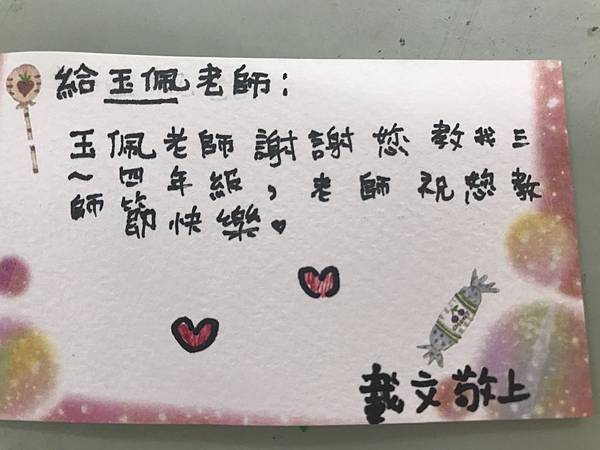 給玉佩老師：
玉佩老師謝謝您教我三
～四年級，老師祝您教
師節快樂。
文敬上